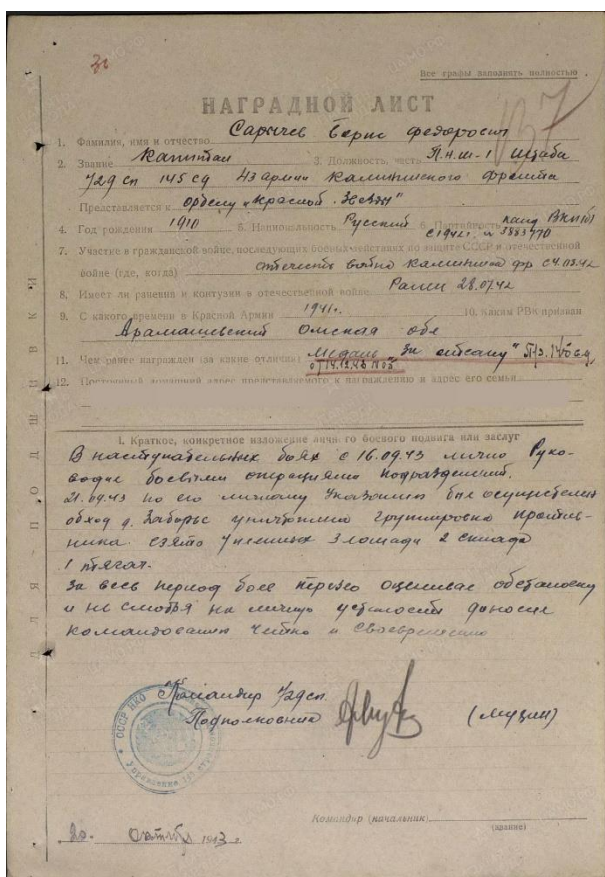 Все графы заполнять полностью
НАГРАДНОЙ ЛИСТ
1. Фамилия, имя и отчество Сарычев Борис Федорович
2. Звание Капитан 3. Должность, часть П.н.ш-1 Штаба
729 сп 145 сд 43 армии Калининского фронта
Представляется к ордену "Красной Звезды"
4. Год рождения 1910 5. Национальность Русский 6. Партийность канд ВКП(б)
с 1942г. № 3883770
7. Участие в гражданской войне, последующих боевых действиях по защите СССР и отечественной
войне (где, когда) отечеств война Калинин фр с 4.03.42
8. Имеет ли ранения и контузии в отечественной войне Ранен 28.07.42
9. С какого времени в Красной Армии 1941г. 10. Каким РВК призван
Омская обл
11. Чем ранее награжден (за какие отличия) Медаль "За отвагу" Пр. 145 сд
от 14.12.43
12. Постоянный домашний адрес представляемого к награждению и адрес его семьи
I. Краткое, конкретное изложение личного боевого подвига или заслуг
В наступательных боях с 16.09.43 лично руко-
водил боевыми операциями подразделений.
21.09.43 по его личному указанию был осуществлен
обход д. Заборье уничтожена группировка против-
ника. взято 7 пленных 3 лошади 2 склада
1 тягач.
За весь период боев трезво оценивал обстановку
и не смотря на личную усталость доносил
командованию четко и своевременно
Командир 729 сп
Подполковник
СССР НКО
Управление
Командир (начальник)
(звание)
20. Октября 1943 г.
ДЛЯ ПОДШИВКИ